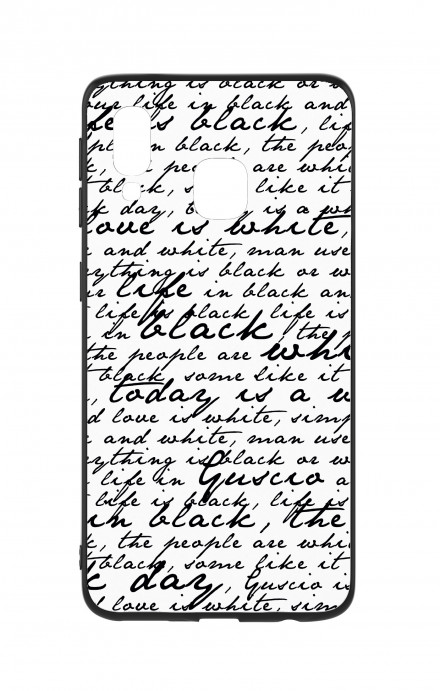 is black or
life in black and
is black, life
black, the
are
like it
day, is a
love is white,
and white, man use
is black or
life in black an
life is black, life is
in black, the
the people are
black, some like it
, today is a
d love is white,
and white, man use
is black or
life in Guscio a
life is black, life is
in black, the
, the people are
black, some like it
day, Guscio is
love is white,